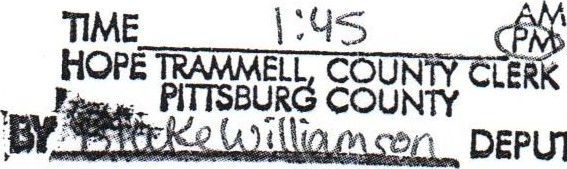 TIME 1:45 AM PM
HOPE TRAMMELL, COUNTY CLERK
PITTSBURG COUNTY
BY Williamson DEPUT